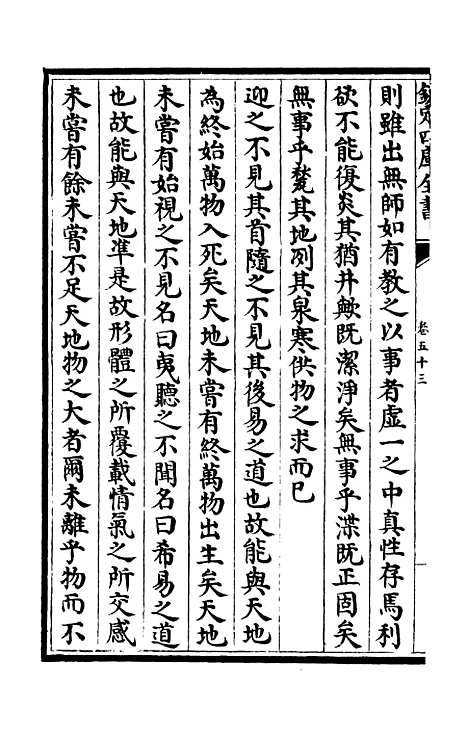 欽定四庫全書
卷五十三
則雖出無師如有教之以事者虛一之中真性存焉利
欲不能復炎其猶井歟既潔淨矣無事乎渫既正固矣
無事乎甃其地冽其泉寒供物之求而已
迎之不見其首隨之不見其後易之道也故能與天地
為終始萬物入死矣天地未嘗有終萬物出生矣天地
未嘗有始視之不見名曰夷聽之不聞名曰希易之道
也故能與天地準是故形體之所覆載情氣之所交感
未嘗有餘未嘗不足天地物之大者爾未離乎物而不